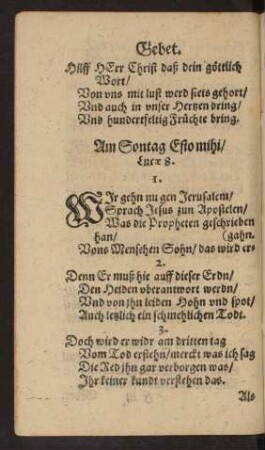 Gebet.
Hilff HErr Christ daß dein göttlich
Wort/
Von vns mit lust werd stets gehort/
Vnd auch in vnser Hertzen dring/
Vnd hundertfeltig Früchte bring.
Am Sontag Esto mihi/
Lucæ 8.
1.
WIr gehn nu gen Jerusalem/
Sprach Jesus zun Apostelen/
Was die Propheten geschrieben
han/ (gahn.
Vons Menschen Sohn/ das wird er-
2.
Denn Er muß hie auff dieser Erdn/
Den Heiden vberantwort werdn/
Vnd von jhn leiden Hohn vnd spot/
Auch letzlich ein schmehlichen Todt.
3.
Doch wird er widr am dritten tag
Vom Tod erstehn/ merckt was ich sag
Die Red jhn gar verborgen was/
Jhr keiner kundt verstehen das.
Als